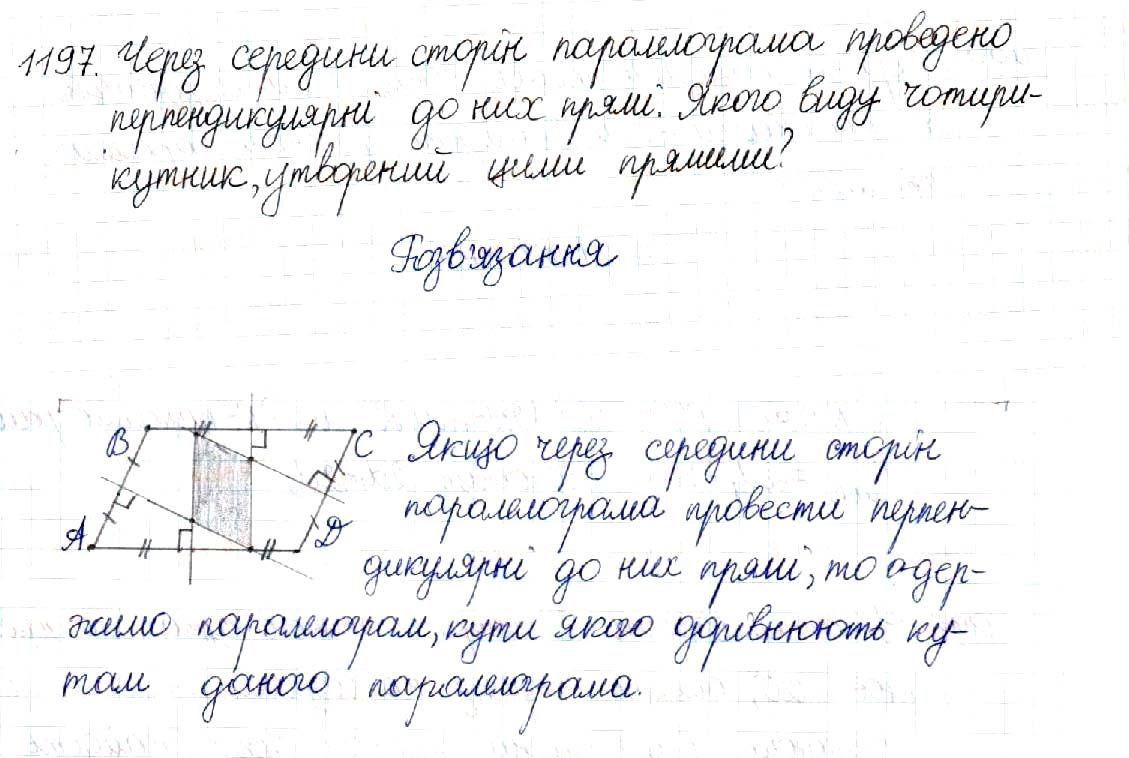 1197. Через середини сторін паралелограма проведено
перпендикулярні до них прямі. Якого виду чотири-
кутник, утворений цими прямими?
Розв'язання
B
C
A
D
Якщо через середини сторін
паралелограма провести перпен-
дикулярні до них прямі, то одер-
жимо паралелограм, кути якого дорівнюють ку-
там даного паралелограма.